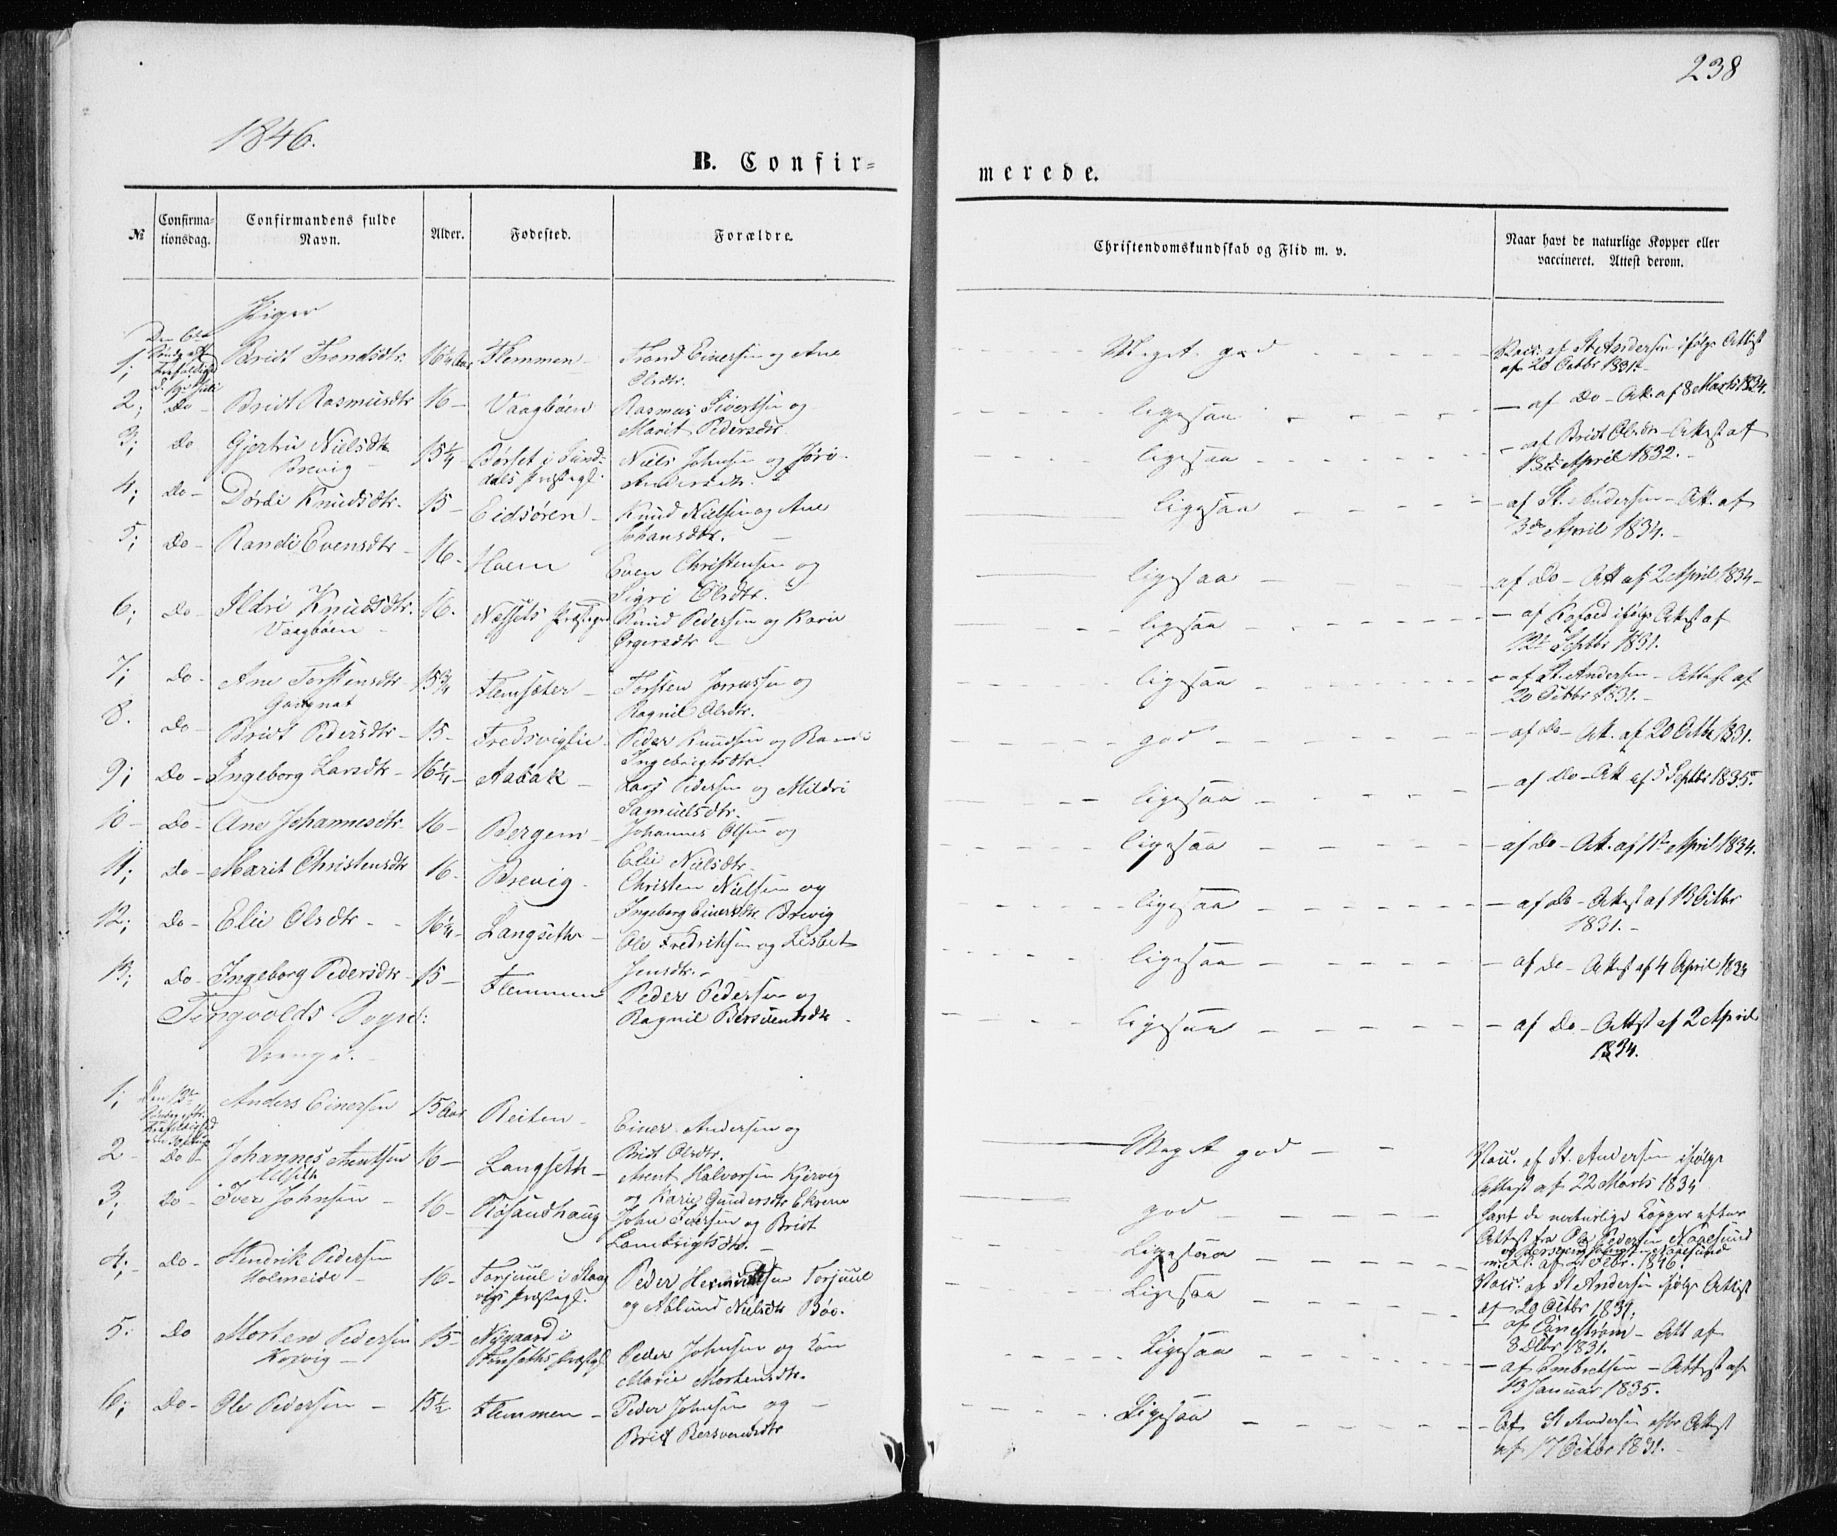 238
1846.
B. Confir=
merede.
№
Confirma-
tionsdag.
Confirmandens fulde
Navn.
Alder.
Fødested.
Forældre.
Christendomskundskab og Flid m. v.
Naar havt de naturlige Kopper eller
vaccineret. Attest derom.
Piger
1; Bridt Trondsdtr. 16¼ Aar Flemmen Trond Einersen og Ane
Olsdtr. Meget god Vacc. af St. Andersen ifølge Attest
af 20 Octbr 1831
2; Do Bridt Rasmusdtr 16 Vaagbøen Rasmus Sivertsen og
Marit Pedersdtr ligesaa af Do Att. af 8 Marts 1834.
3; Do Gjertru Nielsdtr
Brevig 15¼ Børset i Sund-
dals Præstegl. Niels Johnsen og Jøri
Andersdtr. ligesaa af Bridt Olsdtr Attest af
13de April 1832.
4; Do Dordi Knudsdtr. 15 Eidsøren Knud Nielsen og Ane
Johansdtr. ligesaa af St. Andersen Att. af
3de April 1834.
5; Do Randi Evensdtr 16 Hoem Even Christensen og
Sigri Olsdtr. ligesaa af Do Att af 2 April 1834
6; Do Ildri Knudsdtr.
Vaagbøen 16. Nessets Præstegjeld Knud Pedersen og Karie
Ørgersdtr ligesaa af Kofoed ifølge Attest af
12te Septbr 1831.
7; Do Ane Torstensdtr
15¾ Flemsæter Torsten
Ragnil Olsdtr. ligesaa af St. Andersen Attest af
20 Octbr 1831.
8. Do Bridt Pedersdtr 15 Fredsviglie Peder Knudsen og Randi
Ingebrigtsdtr. god af Do Att. af 20 Octbr 1831.
9; Do Ingeborg Larsdtr 16¼ Aabak Lars Pedersen og Mildri
Samuelsdtr. ligesaa af Do Att af 5 Septbr 1835
10 Do Ane Johannesdtr 16 Bergem Johannes Olsen og
Elie Nielsdtr. ligesaa af Do Att. af 1ste April 1834.
11; Do Marit Christensdtr 16 Brevig Christen Nielsen og
Ingeborg Einersdtr Brevig ligesaa af Do Attest af 13 Octbr
1831.
12; Do Elie Olsdtr 16¼ Langseth Ole Fredriksen og Lisbet
Jensdtr. ligesaa af Do Attest af 4 April 1834
13; Do Ingeborg Pedersdtr 15 Flemmen Peder Pedersen og
Ragnil Bersvendsdtr ligesaa af Do Attest af 2 April
1834.
Tingvolds Sogn:
Drenge.
1; Anders Einersen 15 Aar Reiten Einer Andersen og
Bridt Olsdtr. Meget god Vacc. af St. Andersen ifølge
Attest af 22 Marts 1834
2 Do Johannes Arentsen
16 Langseth Arent Halvorsen Kjervig
og Karie Gundersdtr Ekren god havt de naturlige Kopper efter
Attest fra Ole Pedersen
af 2 Febr. 1846.
3; Do Iver Johnsen 16 Røsandhaug John Iversen og Bridt
Lambrigtsdtr. Ligesaa Vacc. af St Andersen ifølge Attest
af 20 Octbr 1831.
4; Do Hendrik Pedersen
Holmeide 16 Torjuul i Stang-
vigs Præstegl. Peder Torjuul
og Ablund Nielsdtr Bøe. Ligesaa af Att af
8 Dcbr 1831.
5. Do Morten Pedersen
Korvig 15 Nygaard i
Præstegl. Peder Johnsen og
Marie Mortensdtr. Ligesaa af Attest af
13 Januar 1835.
6; Do Ole Pedersen 15½ Flemmen Peder Johnsen og
Bridt Bersvendsdtr Ligesaa af St Andersen efter Attest
af 17 Octbr 1831.